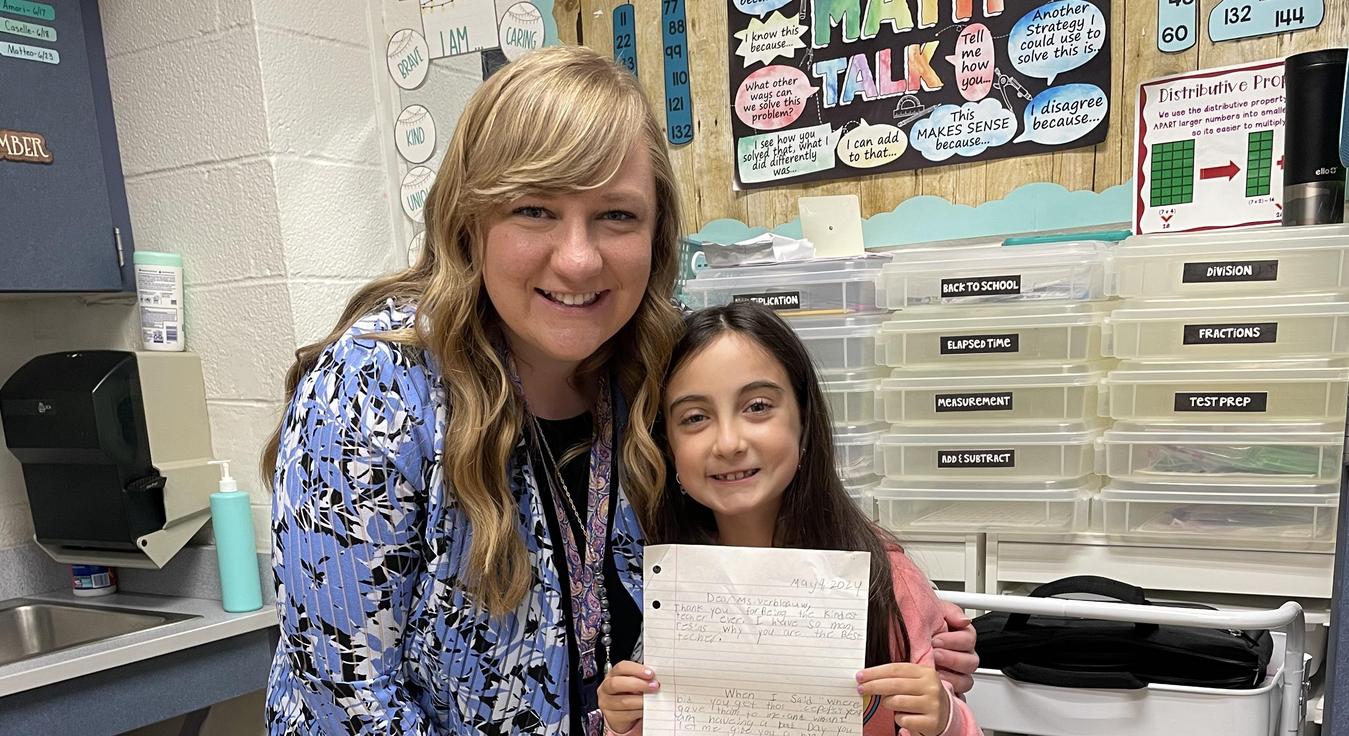 Amari-6/17
Caselle-6/18
Matteo-6/23
MBER
I AM...
BRAVE
CARING
KIND
UNIQ
11
22
33
77
88
99
110
121
132
48
60
132 144
because...
MATH
TALK
I know this
because...
What other
ways can
we solve this
problem?
I see how you
solved that, what I
did differently
was...
I can add
to that...
Tell
me
how
you...
This
MAKES SENSE
because...
Another
Strategy I
could use to
solve this is...
I disagree
because...
Distributive Prop
We use the distributive property
APART larger numbers into smalle
so its easier to multiply
(7 x 4)
28
(7 x 2) = 14
ello
TIPLICATION
BACK TO SCHOOL
ELAPSED TIME
MEASUREMENT
ADD & SUBTRACT
DIVISION
FRACTIONS
TEST PREP
May 2024
Dear Ms. Verbleauw,
Thank you for Being the Kindest
teher ever. I have so many
resins why you are the Best
techer.
When I Said "where
did you get thos
gave them to me and when I
am having a bad Day you
let me give you a